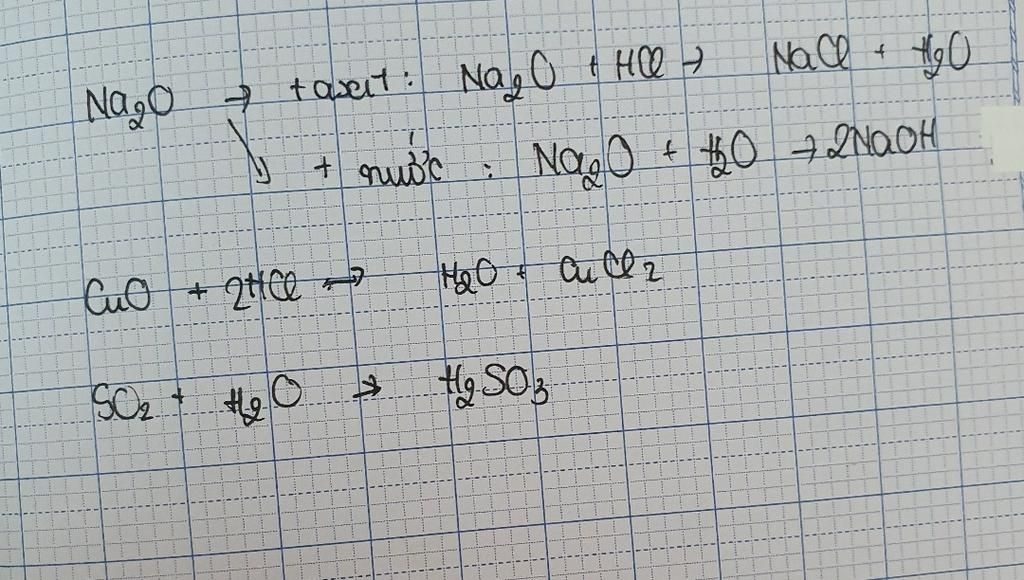 Na₂O → + axit : Na₂O + HCl → NaCl + H₂O
↘ + nước : Na₂O + H₂O → 2NaOH
CuO + 2HCl → H₂O + CuCl₂
SO₂ + H₂O → H₂SO₃